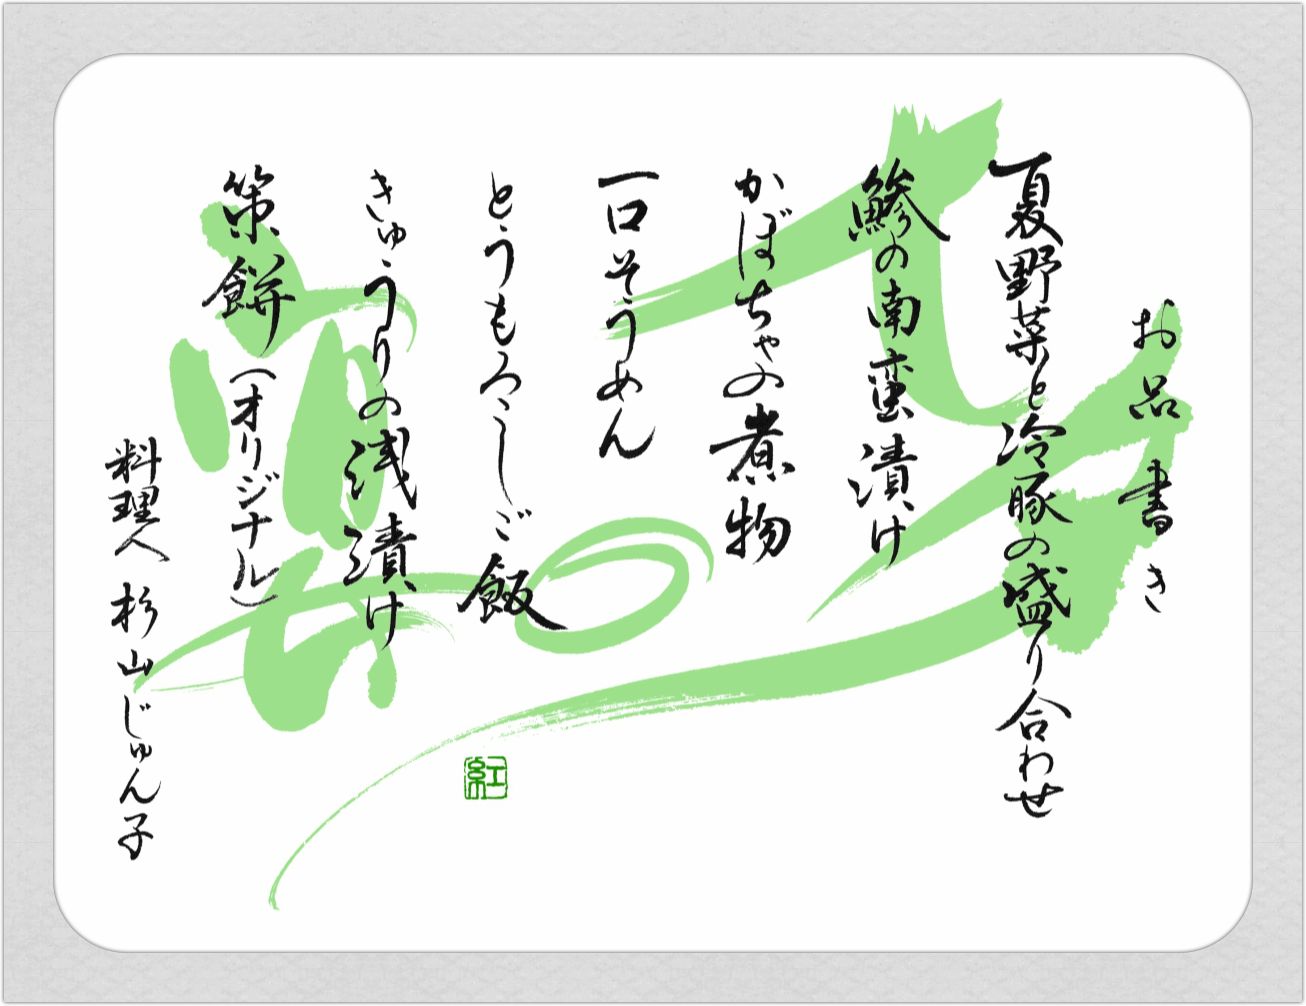 お品書き
夏野菜と冷豚の盛り合わせ
鯵の南蛮漬け
かぼちゃの煮物
一口そうめん
とうもろこしご飯
きゅうりの浅漬け
策餅（オリジナル）
料理人 杉山じゅん子
紅